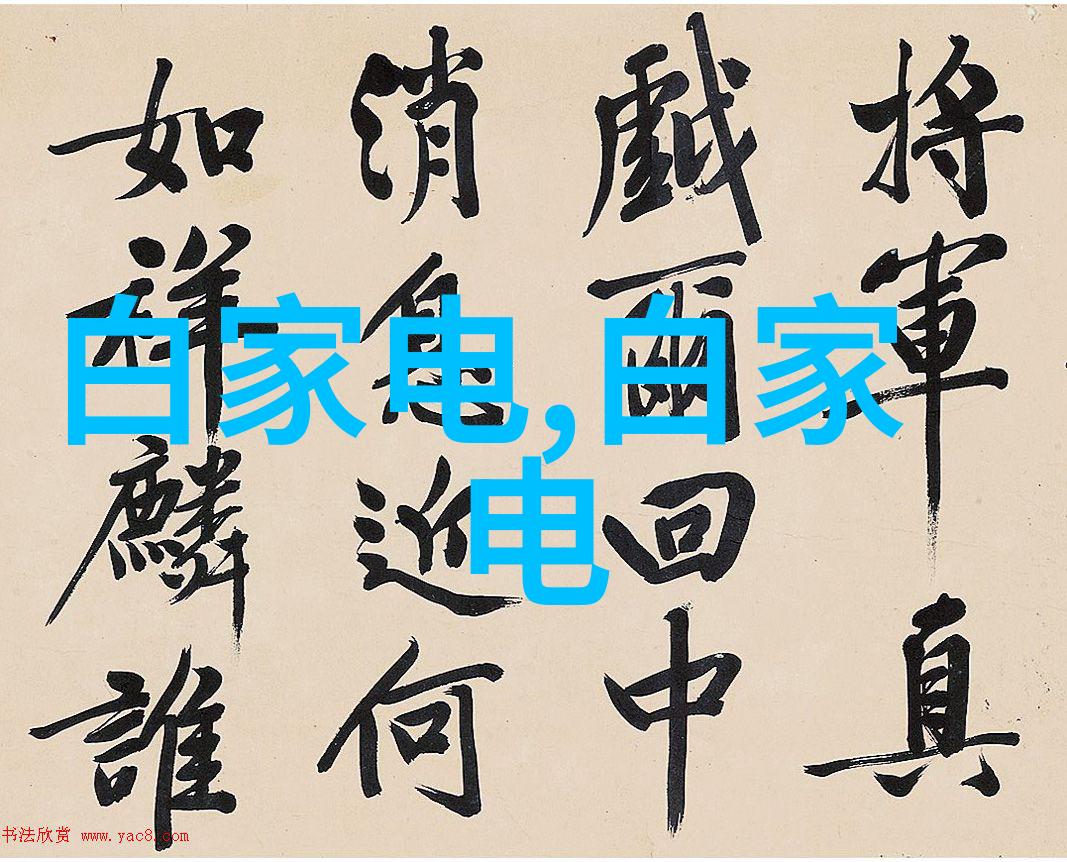 将軍真
戲回中
消息近何
如祥麟誰
白家电,白家
电
书法欣赏 www.yac8.com